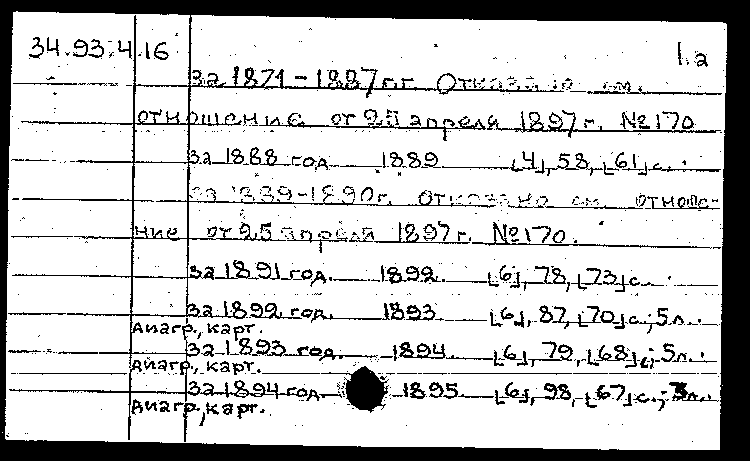 34.93.4.16 1.а
за 1871-1887 г.г. Отказано см.
отношение от 25 апреля 1897 г. №170
за 1888 год 1889 [4], 58, [61] с.
за 1889-1890 г. отказано см. отноше-
ние от 25 апреля 1897 г. №170.
за 1891 год. 1892. [6], 78, [73] с.
за 1892 год. 1893 [6], 87, [70] с.; 5 л.
диагр., карт.
за 1893 год. 1894. [6], 79, [68] с.; 5 л.
диагр., карт.
за 1894 год. 1895. [6], 98, [67] с.; л.
диагр., карт.